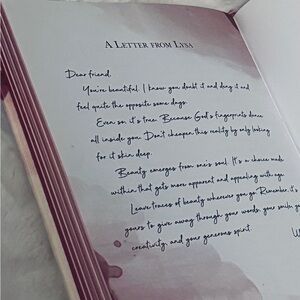 A LETTER FROM LYSA
Dear friend,
You're beautiful. I know you doubt it and deny it and
feel quite the opposite some days.
Even so, it's true. Because God's fingerprints dance
all inside you. Don't cheapen this reality by only looking
for it skin deep.
Beauty emerges from one's soul. It's a choice made
within that gets more apparent and appealing with age.
Leave traces of beauty wherever you go. Remember, it's
yours to give away through your words, your smile, your
creativity, and your generous spirit.